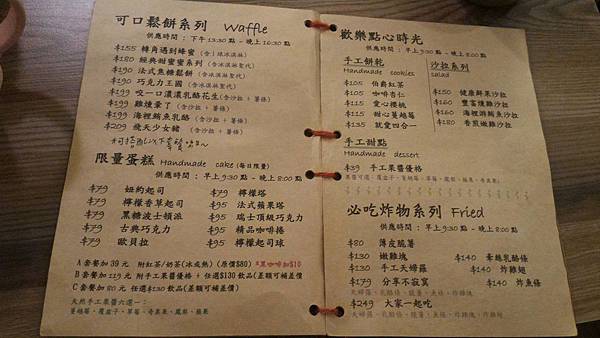 可口鬆餅系列 Waffle
供應時間：下午13:30 點 - 晚上16:30 點
$155 轉角遇到蜂蜜 (含1球冰淇淋)
$180 經典甜蜜蜜系列 (含冰淇淋聖代)
$190 法式焦糖鬆餅 (含冰淇淋聖代)
$190 巧克力王國 (含冰淇淋聖代)
$199 咬一口濃濃乳酪花生 (含沙拉 + 薯條)
$199 雞燻暈了 (含沙拉 + 薯條)
$199 海裡鮪魚乳酪 (含沙拉 + 薯條)
$209 飛天少女豬 (含沙拉 + 薯條)
可搭配以下套餐
限量蛋糕 Handmade cake (每日限量)
供應時間：早上9:30 點 - 晚上8:00 點
$79 紐約起司 $79 檸檬塔
$79 檸檬香草起司 $95 法式蘋果塔
$79 黑糖波士頓派 $95 瑞士頂級巧克力
$79 古典巧克力 $95 精品咖啡捲
$79 歐貝拉 $95 檸檬起司球
A 套餐加 39 元 附紅茶/奶茶(冰或熱) (原價$80) *黑咖啡加$10
B 套餐加 119 元 附手工果醬優格 + 任選$130 飲品(差額可補差價
C 套餐加 80 元 任選$130 飲品(差額可補差價)
天然手工果醬六選一：
蔓越莓、覆盆子、草莓、奇異果、鳳梨、蘋果
歡樂點心時光
供應時間：早上9:30 點 - 晚上8:00 點
手工餅乾
Handmade cookies
$105 伯爵紅茶
$105 咖啡杏仁
$115 愛心櫻桃
$115 甜心蔓越莓
$135 就愛四合一
沙拉系列
salad
$150 健康鮮果沙拉
$160 豐富燻雞沙拉
$160 海裡游鮪魚沙拉
$180 香煎嫩雞沙拉
手工甜點
Handmade dessert
$39 手工果醬優格
必吃炸物系列 Fried
供應時間：早上9:30 點 - 晚上8:00 點
$80 薄皮脆薯
$130 嫩雞塊 $140 牽絲乳酪條
$130 手工天婦羅 $140 炸雞翅
$179 分享不寂寞 $140 炸魚條
$249 大家一起吃